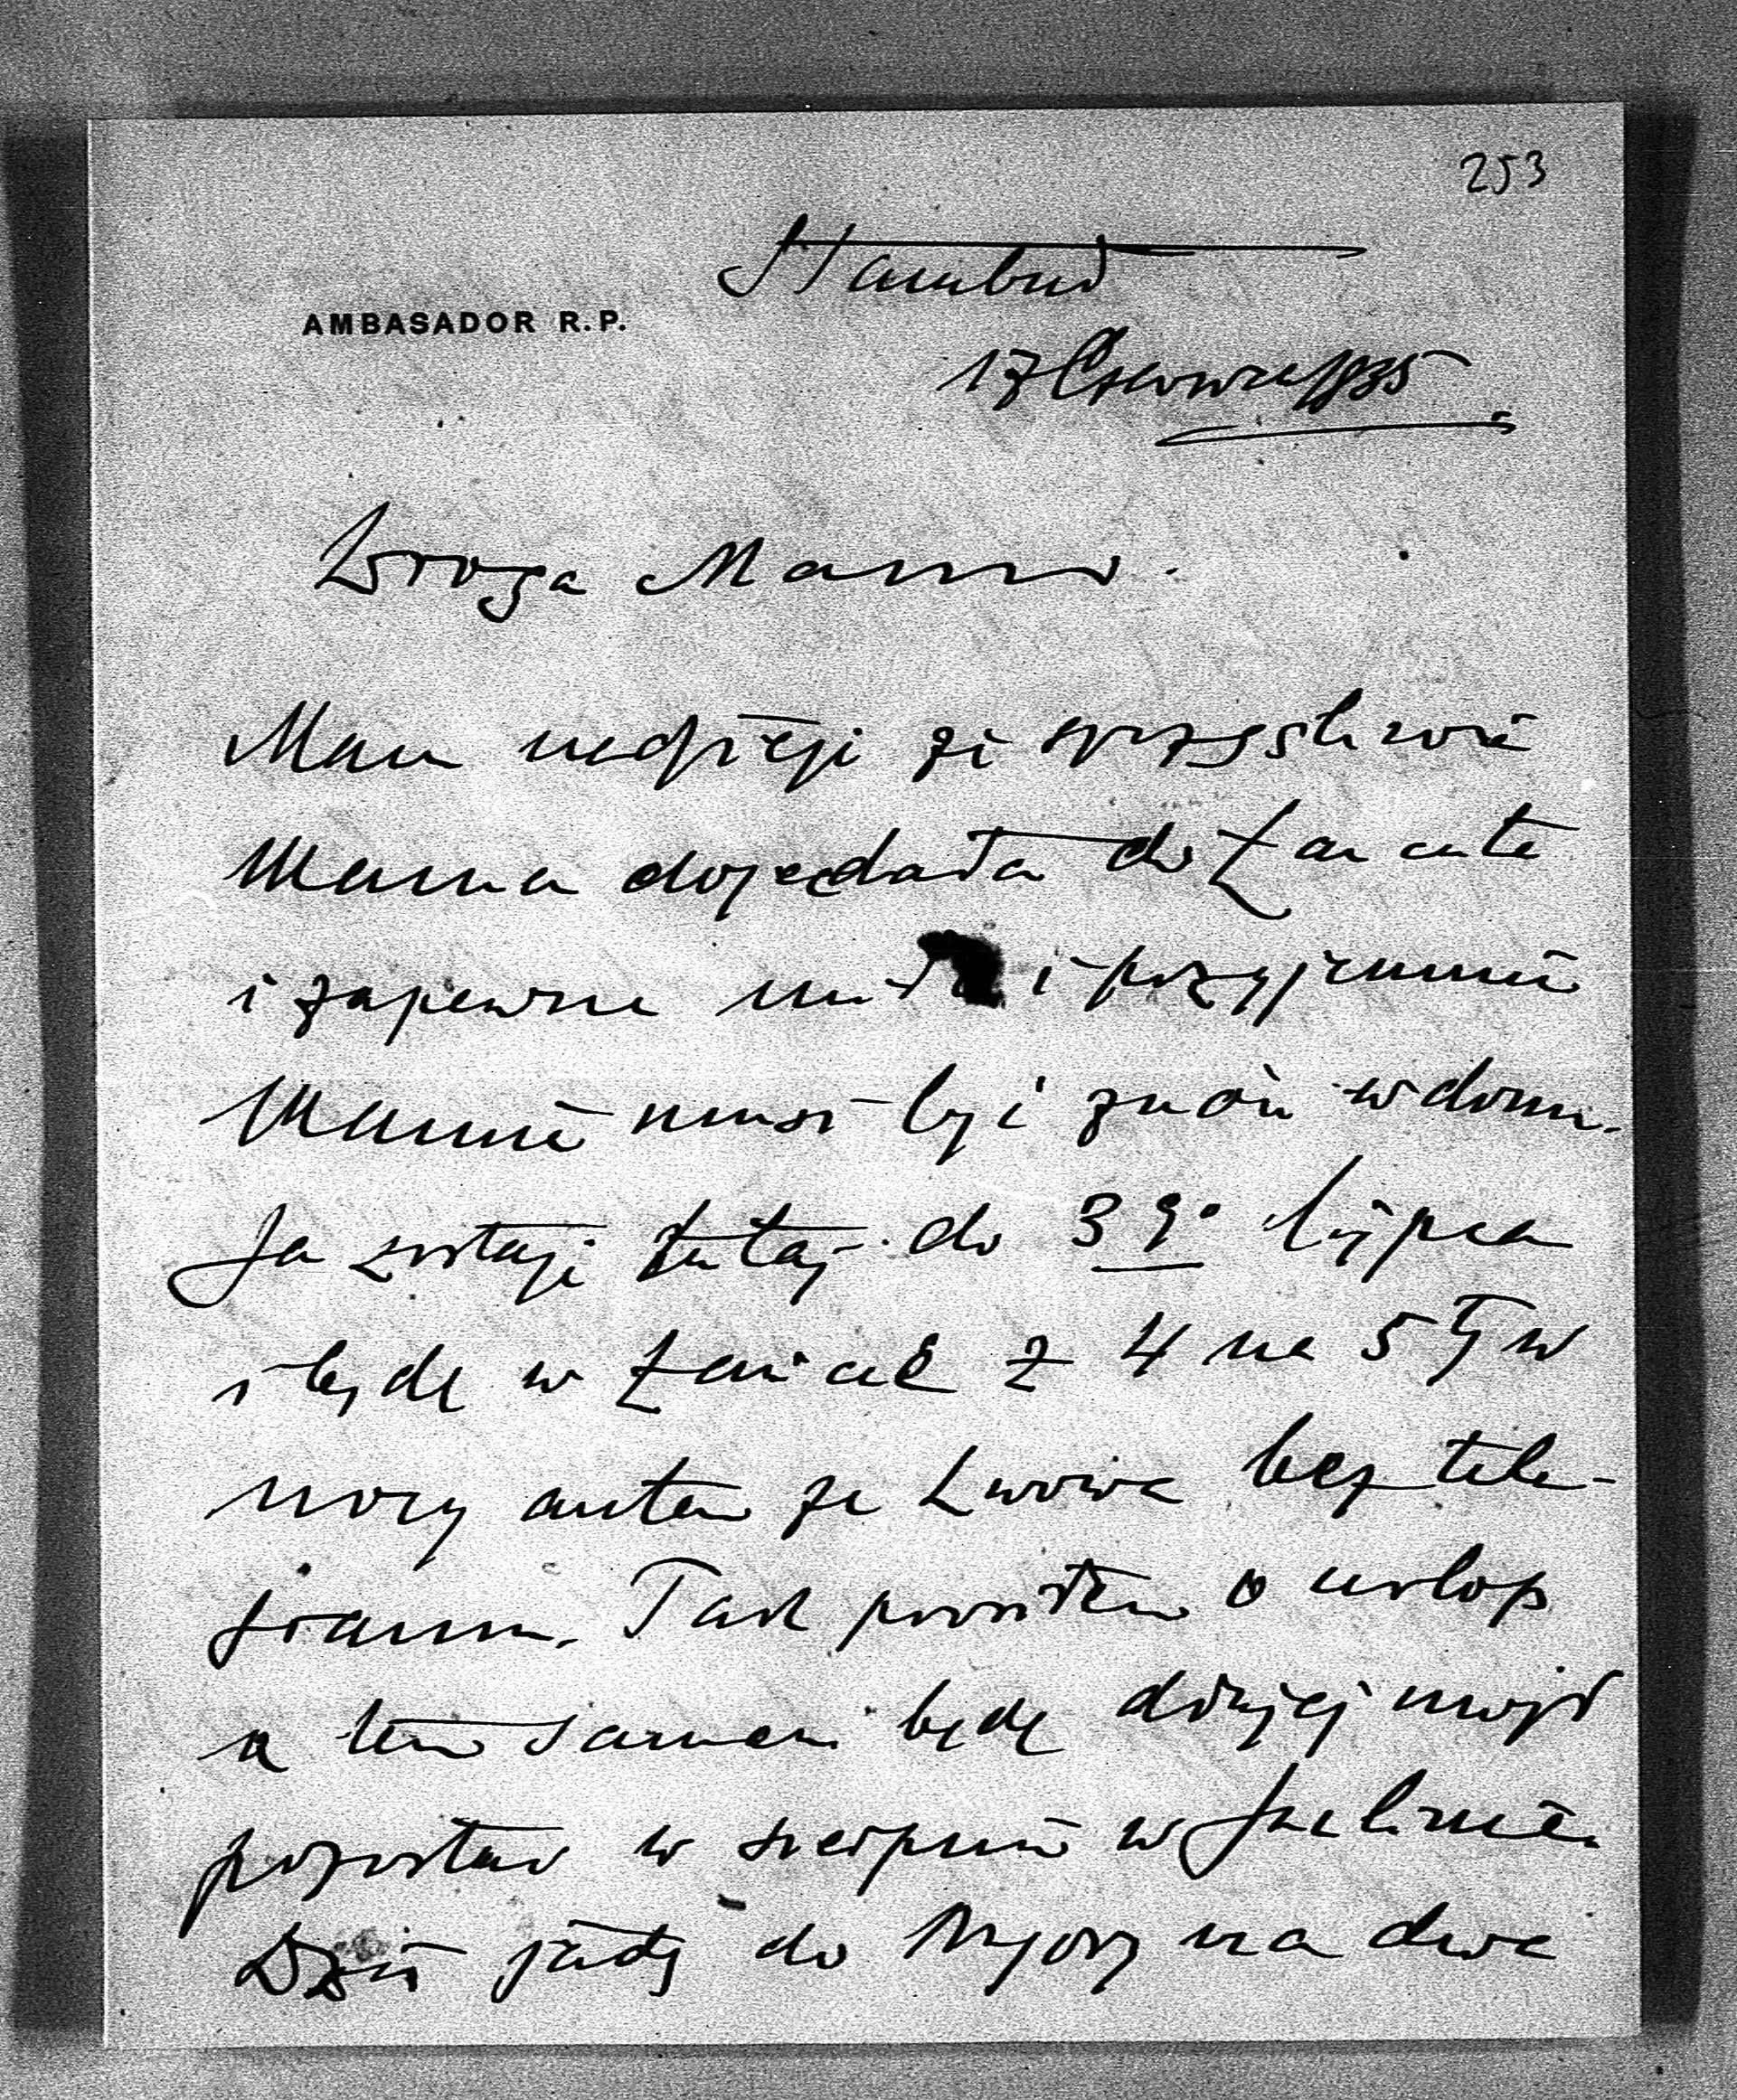 253
Stambuł
AMBASADOR R.P.
17 Czerwca 1935
Droga Mamo.
Mam nadzieję że szczęśliwie
Mama dojechała do Łańcuta
i zapewne miło i przyjemnie
Mamie musi być znów w domu.
Ja zostaję tutaj do 3go lipca
i będę w Łańcucie z 4 na 5ty w
nocy autem ze Lwowa bez tele-
gramu. Tak prosiłem o urlop
a tem samem będę dłużej mógł
pozostać w sierpniu w
Dziś jadę do na dwa